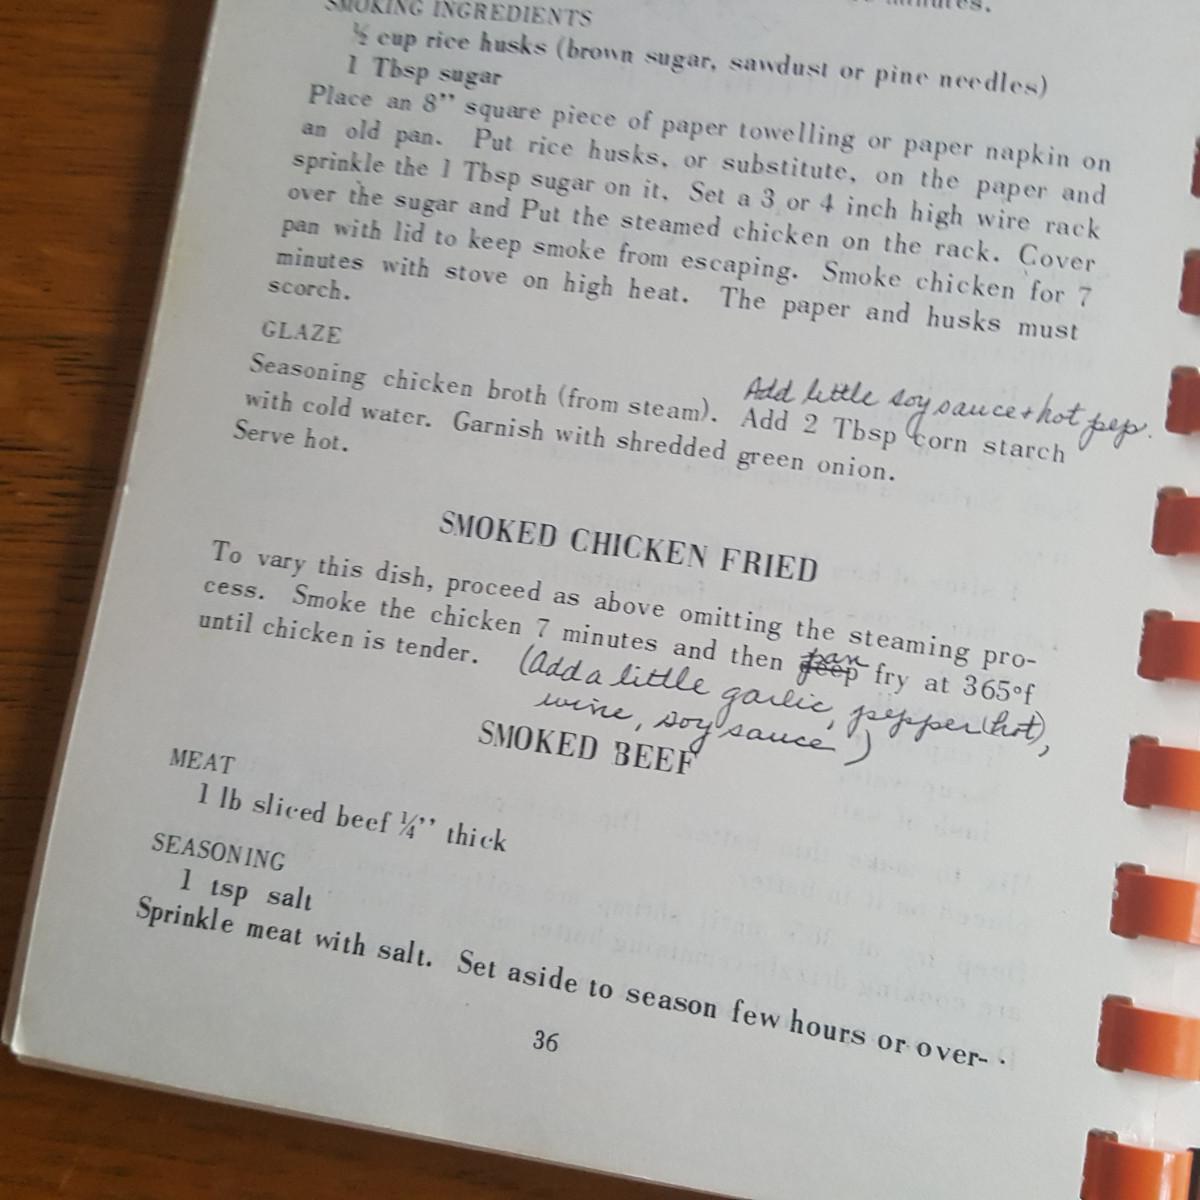 minutes.
SMOKING INGREDIENTS
½ cup rice husks (brown sugar, sawdust or pine needles)
1 Tbsp sugar
Place an 8” square piece of paper towelling or paper napkin on
an old pan. Put rice husks, or substitute, on the paper and
sprinkle the 1 Tbsp sugar on it. Set a 3 or 4 inch high wire rack
over the sugar and Put the steamed chicken on the rack. Cover
pan with lid to keep smoke from escaping. Smoke chicken for 7
minutes with stove on high heat. The paper and husks must
scorch.
GLAZE
Add little soy sauce + hot pep.
Seasoning chicken broth (from steam). Add 2 Tbsp corn starch
with cold water. Garnish with shredded green onion.
Serve hot.
SMOKED CHICKEN FRIED
To vary this dish, proceed as above omitting the steaming pro-
cess. Smoke the chicken 7 minutes and then deep pan fry at 365°f
until chicken is tender. (Add a little garlic, pepper (hot),
wine, soy sauce)
SMOKED BEEF
MEAT
1 lb sliced beef ¼” thick
SEASONING
1 tsp salt
Sprinkle meat with salt. Set aside to season few hours or over-
36